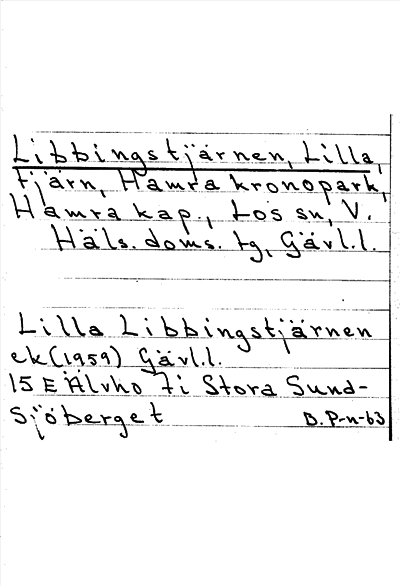 Libbingstjärnen, Lilla,
tjärn, Hamra kronopark,
Hamra kap., Los sn, V.
Häls. doms. tg, Gävl.l.
Lilla Libbingstjärnen
ek (1959) Gävl.l.
15 E Älvho 7i Stora Sund-
sjöberget B. P-n-63